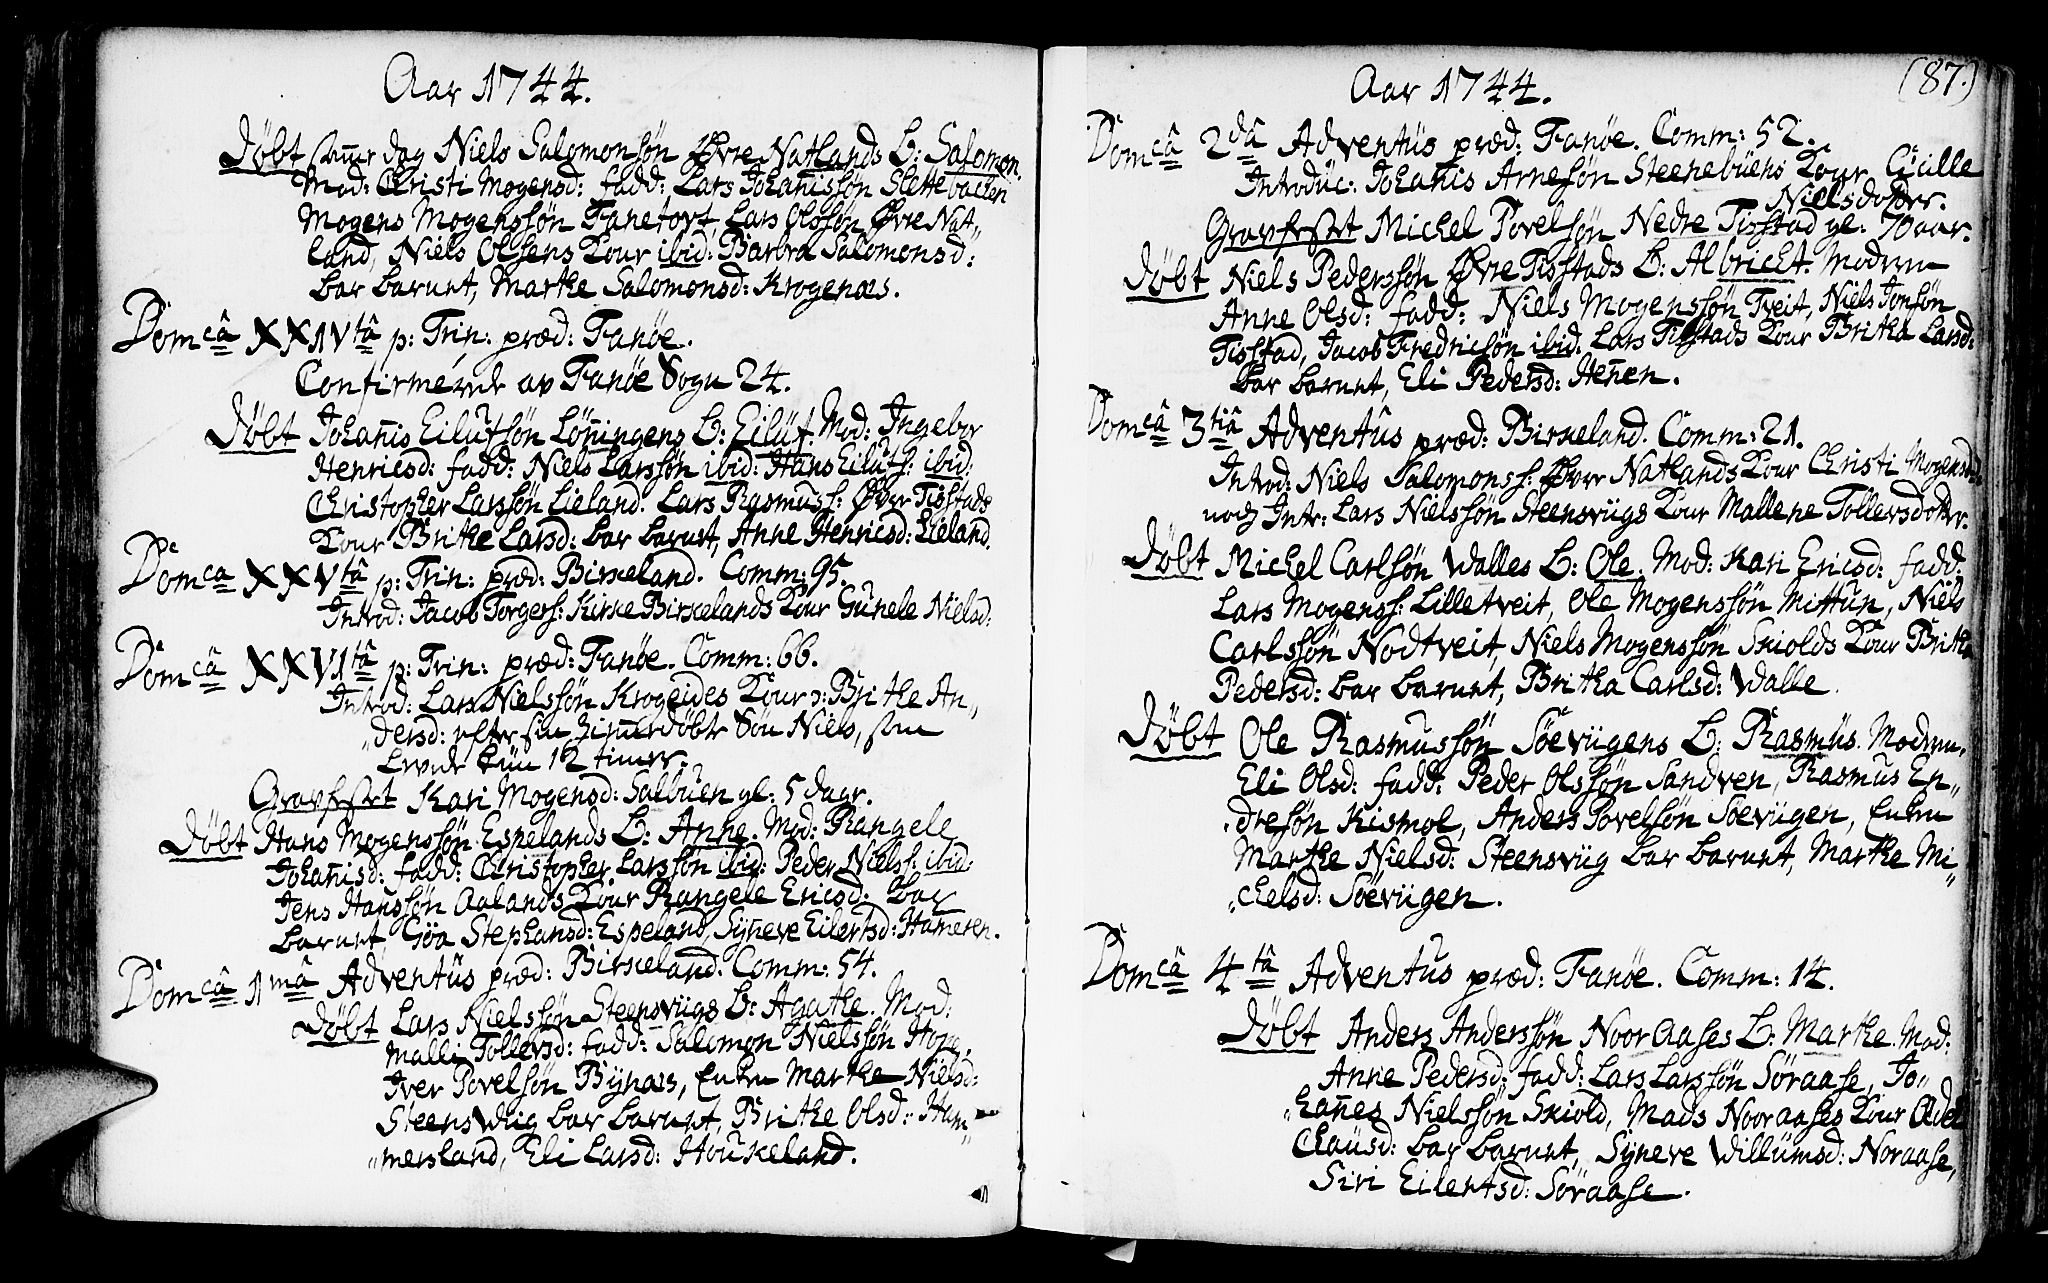 Aar 1744.
Døbt samme dag Niels Salomonsøn Øvre Natlands B: Salomon.
Mod: Christi Mogensd: fadd: Lars Johanissøn Slettebacken
Mogens Mogenssøn Fanetort, Lars Olssøn Øvre Nat„
land, Niels Olsens Kone ibid: Barbra Salomonsd:
bar barnet, Marthe Salomonsd: Krogenæs.
Domcâ XXIVtâ p: Trin: præd: Fanöe.
Confirmerede av Fanöe Sogn 24.
Døbt Johanis Eilufsøn Lønningens B: Eiluf. Mod: Ingebor
Henricsd: fadd: Niels Larssøn ibid: Hans Eilufs: ibid:
Christopher Larssøn Lieland. Lars Rasmuss: Øvre Tisstads
Kone Brithe Larsd: bar barnet, Anne Henricsd: Lieland.
Domca XXVtâ p: Trin: præd: Birkeland. Comm: 95.
Introd: Jacob Torgers: Kirke Birkelands Kone Gunele Nielsd:
Domcâ XXVItâ p: Trin: præd: Fanöe. Comm: 66.
Introd: Lars Nielssøn Krogeides Kone ɔ: Brithe An„
„dersd: efter sin hiemmedøbte Søn Niels, som
levede kun 12 timer.
Gravfestet Kari Mogensd: Salbuen gl: 5 dage.
Døbt Hans Mogenssøn Espelands B: Anne. Mod: Rangele
Johanisd: fadd: Christopher Larssøn ibid: Peder Niels: ibid:
Jens Hanssøn Aalands Kone Rangele Ericsd: bar
barnet, Göa Stephansd: Espeland, Synneve Eilertsd: Hameren.
Domcâ 1mâ Adventûs præd: Birkeland. Comm: 54.
Døbt Lars Nielssøn Steensvigs B: Agathe. Mod:
Malli Tollevsd: fadd: Salomon Nielssøn Hope,
Iver Povelsøn Bÿnæs, Enken Marthe Nielsd:
Steensviig bar barnet, Brithe Olsd: Ham„
„mersland, Eli Larsd: Houkeland.
Aar 1744.
(87.)
Domcâ 2dâ Adventûs præd: Fanöe. Comm: 52.
Introduc: Johanis Arnesøn Steenebuens Kone Cicille
Nielsdotter.
Gravfestet Michel Povelsøn Nedre Tisstad gl: 70 aar.
Døbt Niels Pederssøn Øvre Tisstads B: Albricht. Moderen
Anne Olsd: fadd: Niels Mogenssøn Tveit, Niels Jonsøn
Tisstad, Jacob Fredricsøn ibid: Lars Tisstads Kone Britha Larsd:
bar barnet, Eli Pedersd: Hennen.
Domcâ 3tiâ Adventûs præd: Birkeland. Comm: 21.
Introd: Niels Salomons: Øvre Natlands Kone Christi Mogensd:
nock Intr: Lars Nielssøn Steensviigs Kone Mallene Tollevsdotter.
Døbt Michel Carlsøn Walles B: Ole. Mod: Kari Ericsd: fadd:
Lars Mogenss: Lilletveit, Ole Mogenssøn Mittun, Niels
Carlssøn Nodtveit, Niels Mogenssøn Skiolds Kone Brithe
Pedersd: bar barnet, Britha Carlsd: Walle.
Døbt Ole Rasmussøn Söeviigens B: Rasmus. Moderen,
Eli Olsd: fadd: Peder Olssøn Sandven, Rasmus En„
„dresøn Kismol, Anders Povelsøn Söeviigen, Enken
Marthe Nielsd: Steensviig bar barnet, Marthe Mi„
„chelsd: Söeviigen.
Domcâ 4tâ Adventûs præd: Fanöe. Comm: 14.
Døbt Anders Anderssøn Noor Aases B: Marthe. Mod:
Anne Pedersd: fadd: Lars Larssøn Söraase, Jo„
„hannes Nielssøn Skiold, Mads Nooraases Kone Adel
Clausd: bar barnet, Sÿneve Willumsd: Noraase,
Siri Eilertsd: Söraase.